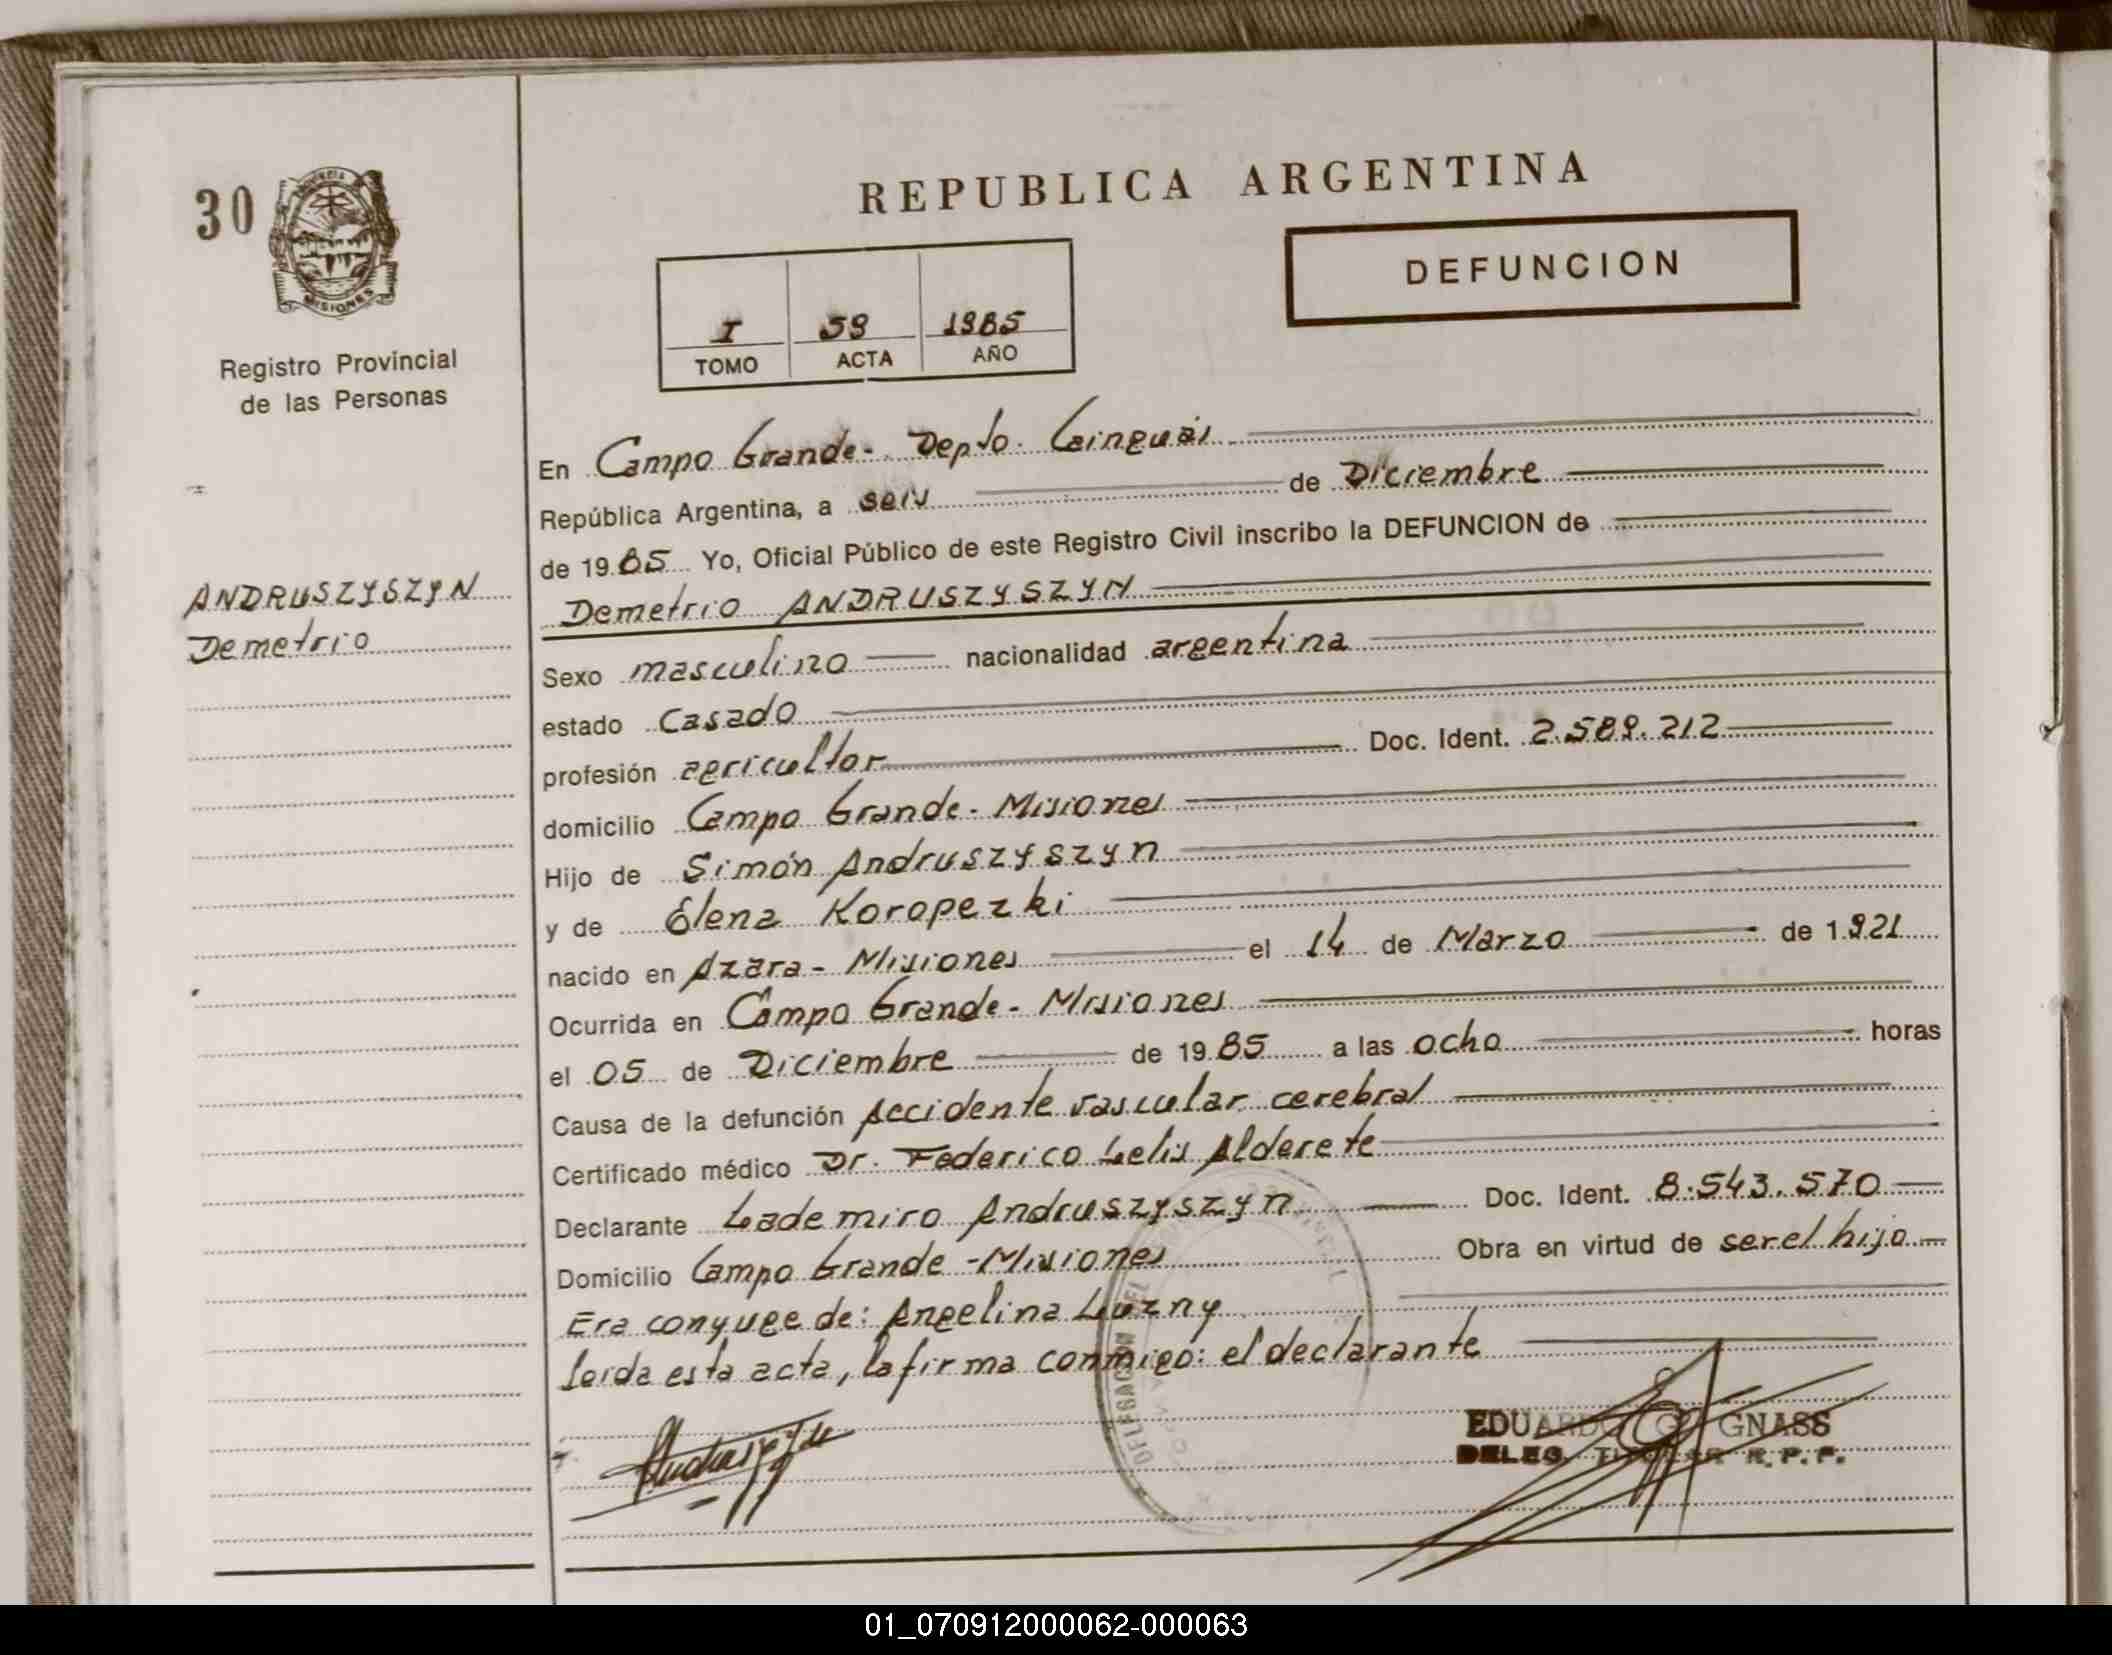 30
PROVINCIA DE
MISIONES
Registro Provincial
de las Personas
ANDRUSZYSZYN
Demetrio
REPUBLICA ARGENTINA
DEFUNCION
I 59 1985
TOMO ACTA AÑO
En Campo Grande - Depto. Cainguás
República Argentina, a seis de Diciembre
de 1985 Yo, Oficial Público de este Registro Civil inscribo la DEFUNCION de
Demetrio ANDRUSZYSZYN
Sexo masculino nacionalidad argentina
estado Casado
profesión agricultor Doc. Ident. 2.589.212
domicilio Campo Grande - Misiones
Hijo de Simón Andruszyszyn
y de Elena Koropezki
nacido en Azara - Misiones el 14 de Marzo de 1921
Ocurrida en Campo Grande - Misiones
el 05 de Diciembre de 1985 a las ocho horas
Causa de la defunción Accidente vascular cerebral
Certificado médico Dr. Federico Lelis Alderete
Declarante Lademiro Andruszyszyn Doc. Ident. 8.543.570
Domicilio Campo Grande - Misiones Obra en virtud de ser el hijo
Era conyuge de: Angelina Luzny
leida esta acta, la firma conmigo: el declarante
EDUARDO GNASS
DELEG. TITULAR R.P.P.
DELEGACION DEL
01_070912000062-000063